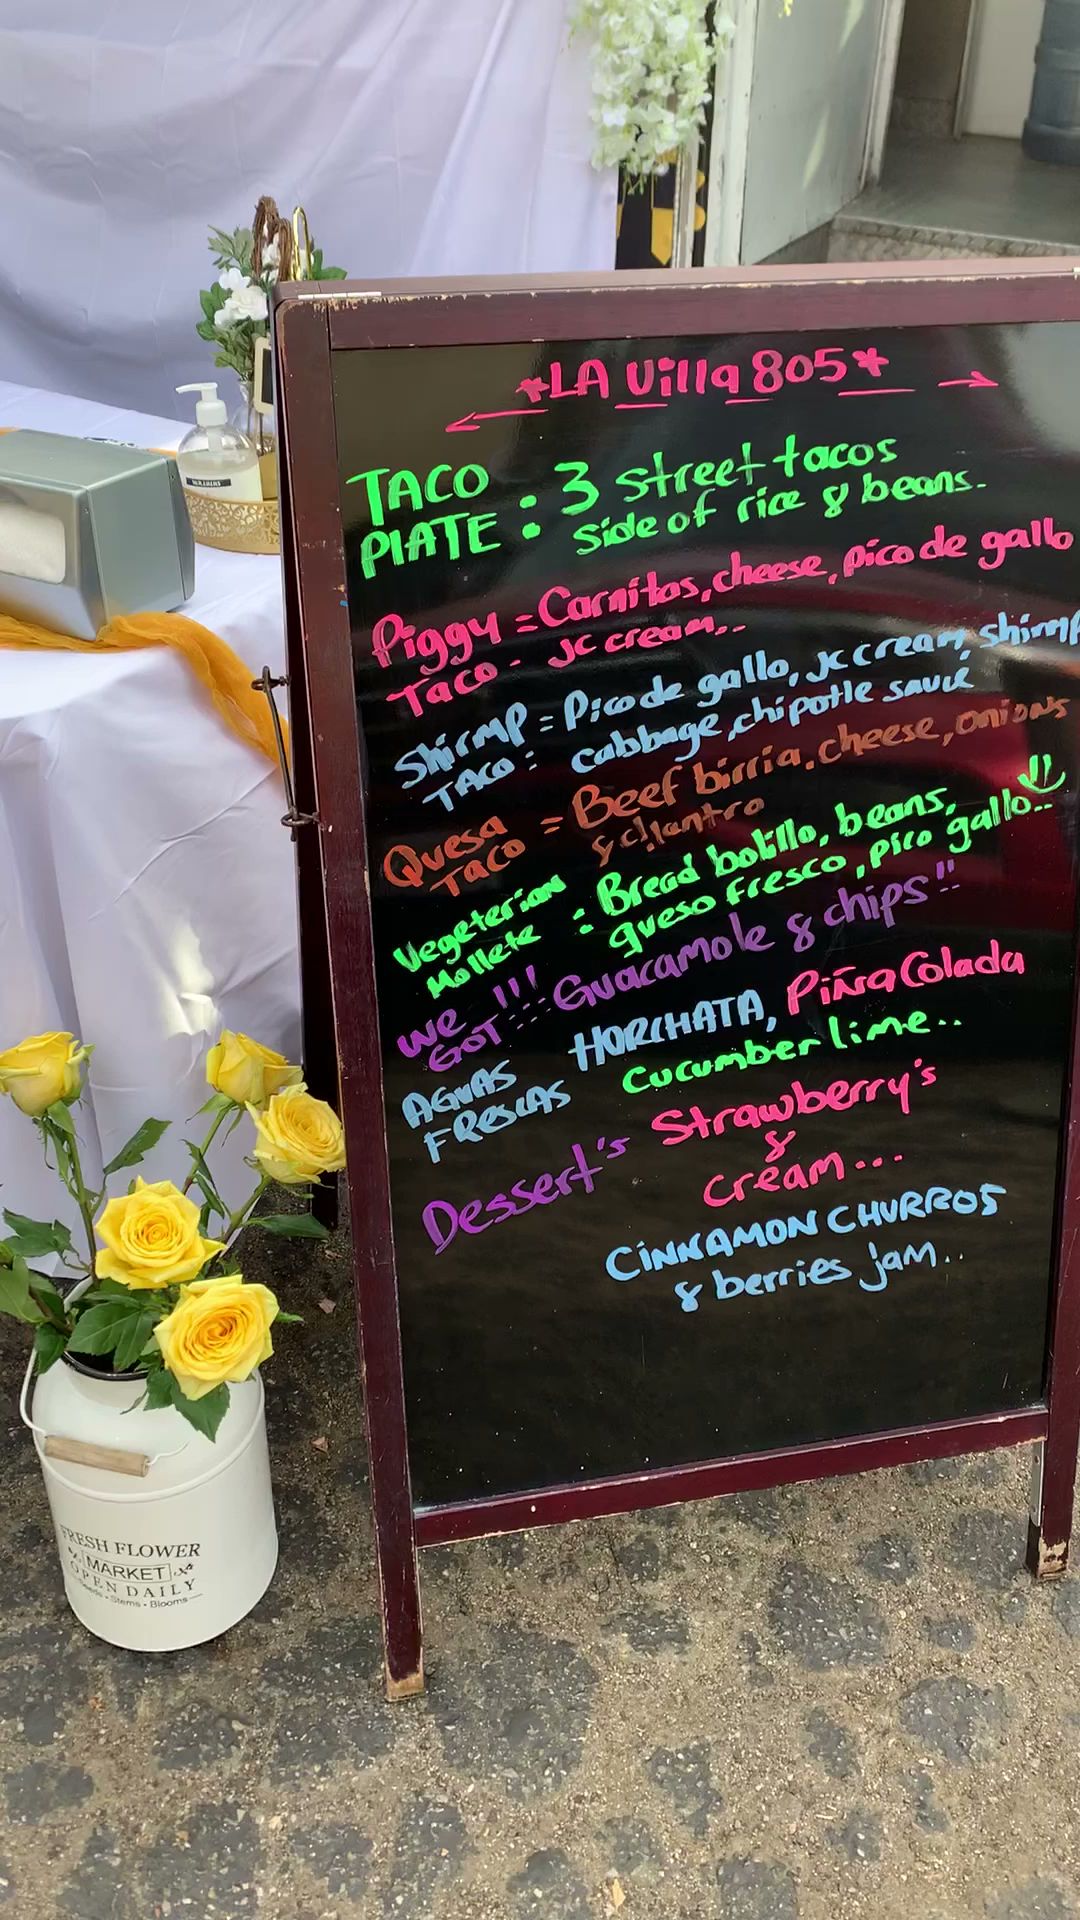 *LA Villa 805*
TACO PLATE : 3 street tacos
side of rice & beans.
Piggy = Carnitas, cheese, pico de gallo
Taco - JC cream..
Shirmp = Pico de gallo, JC cream, shirmp
TACO : cabbage, chipotle sauce
Quesa = Beef birria, cheese, onions
TACO & cilantro
Vegeterian : Bread bolillo, beans,
Mollete queso fresco, pico gallo..
We GOT !!! Guacamole & chips!!
AGUAS HORCHATA, Piña Colada
FRESCAS cucumber lime..
Dessert's Strawberry's
&
cream...
CINNAMON CHURROS
& berries jam..
FRESH FLOWER
MARKET
OPEN DAILY
Stems • Blooms